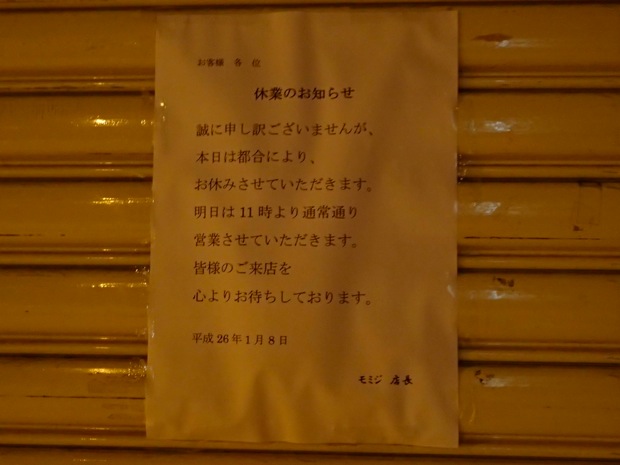 お客様 各 位
休業のお知らせ
誠に申し訳ございませんが、
本日は都合により、
お休みさせていただきます。
明日は11時より通常通り
営業させていただきます。
皆様のご来店を
心よりお待ちしております。
平成26年1月8日
モミジ 店長